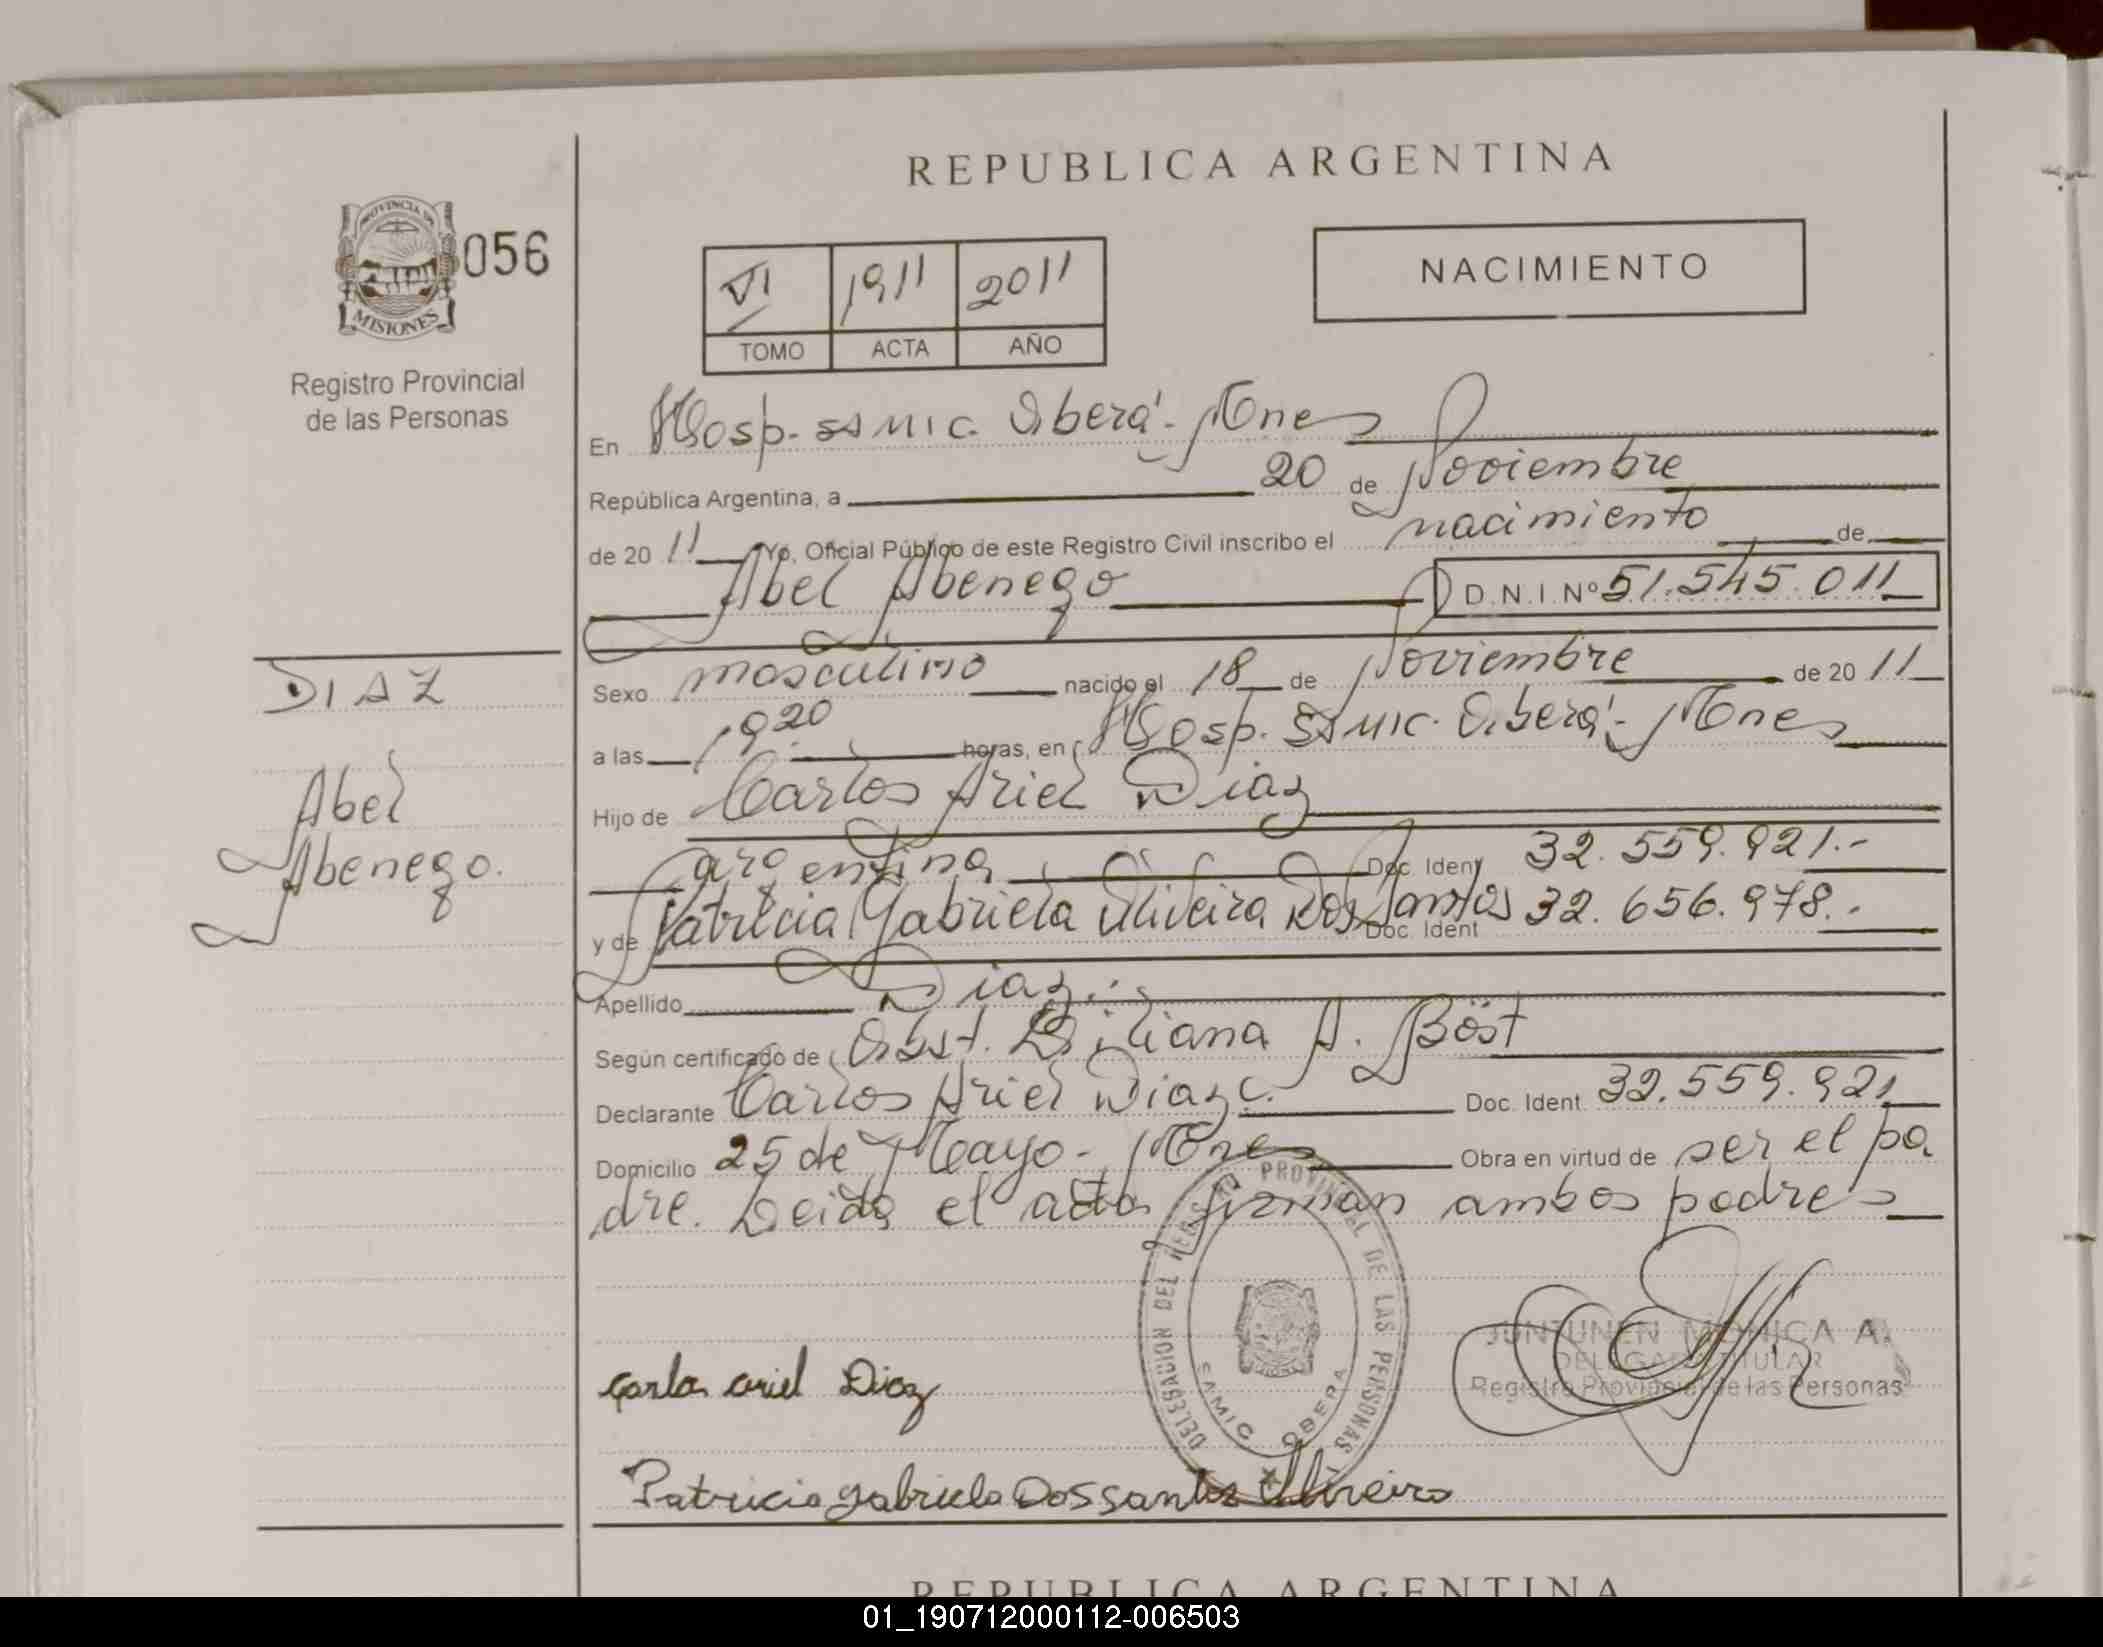 REPUBLICA ARGENTINA
PROVINCIA DE
MISIONES
056
Registro Provincial
de las Personas
VI 1911 2011
TOMO ACTA AÑO
NACIMIENTO
En Hosp. SAMIC. Oberá - Mnes
República Argentina, a 20 de Noviembre
de 20 11 Yo, Oficial Público de este Registro Civil inscribo el nacimiento de
Abel Abenego D.N.I. Nº 51.545.011
DIAZ
Abel
Abenego.
Sexo masculino nacido el 18 de Noviembre de 20 11
a las 19:20 horas, en Hosp. SAMIC. Oberá - Mnes
Hijo de Carlos Ariel Diaz
argentina Doc. Ident 32.559.921.-
y de Patricia Gabriela Oliveira Dos Santos Doc. Ident 32.656.978.-
Apellido Diaz.
Según certificado de Obst. Liliana A. Böst
Declarante Carlos Ariel Diaz. Doc. Ident. 32.559.921
Domicilio 25 de Mayo - Mnes Obra en virtud de ser el pa
dre. Leida el acta firman ambos padres
DELEGACION DEL REGISTRO PROVINCIAL DE LAS PERSONAS
SAMIC OBERA
JUNTUNEN MONICA A.
DELEGADA TITULAR
Registro Provincial de las Personas
Carlos ariel Diaz
Patricia gabriela Dos santos Oliveira
REPUBLICA ARGENTINA
01_190712000112-006503